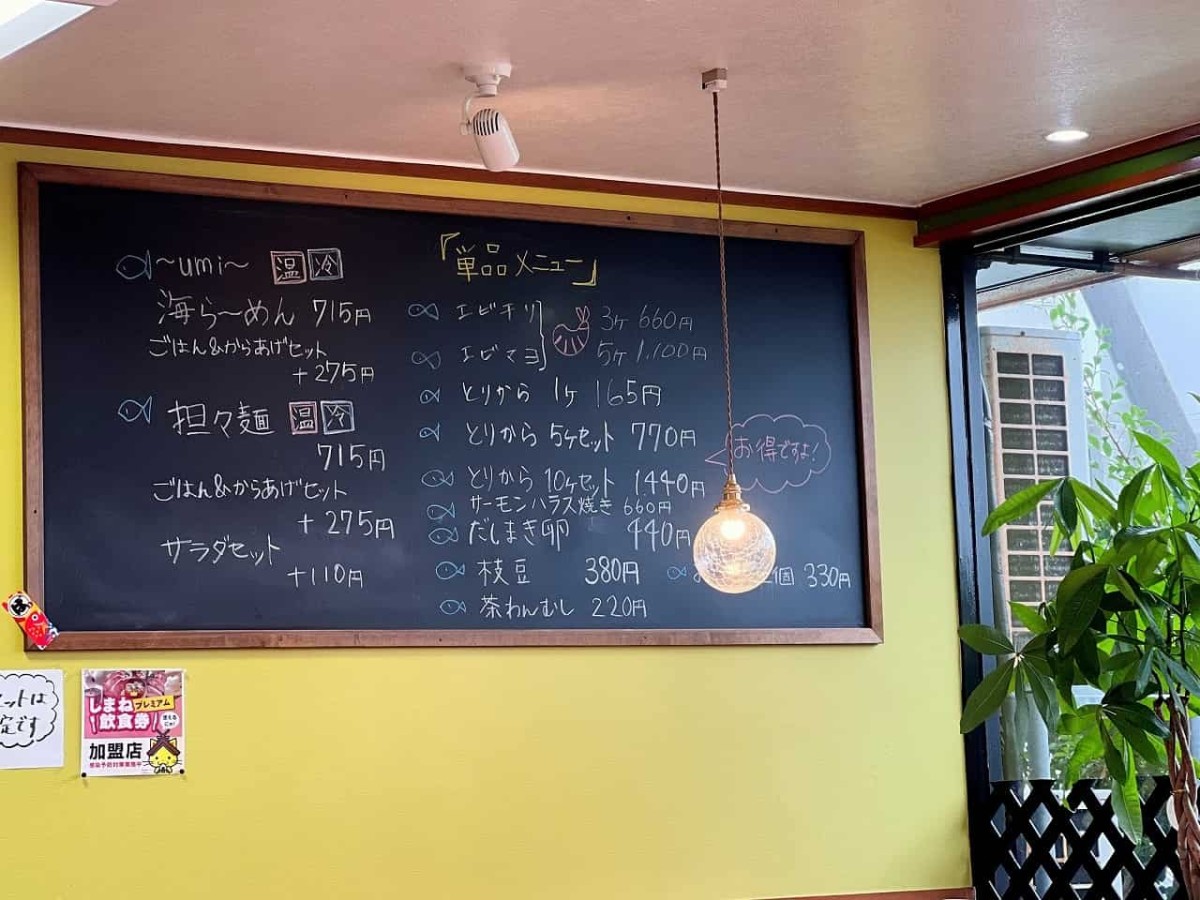 ~umi~ 温 冷
海ら~めん 715円
ごはん&からあげセット
+275円
担々麺 温 冷
715円
ごはん&からあげセット
+275円
サラダセット
+110円
『単品メニュー』
エビチリ
エビマヨ
3ケ 660円
5ケ 1.100円
とりから 1ケ 165円
とりから 5ケセット 770円
とりから 10ケセット 1440円
お得ですよ!
サーモンハラス焼き 660円
だしまき卵 440円
枝豆 380円
個 330円
茶わんむし 220円
ットは
定です
しまね プレミアム
飲食券
加盟店
感染予防対策実施中